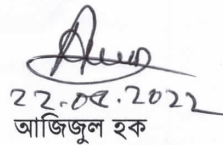 22.08.2022
আজিজুল হক